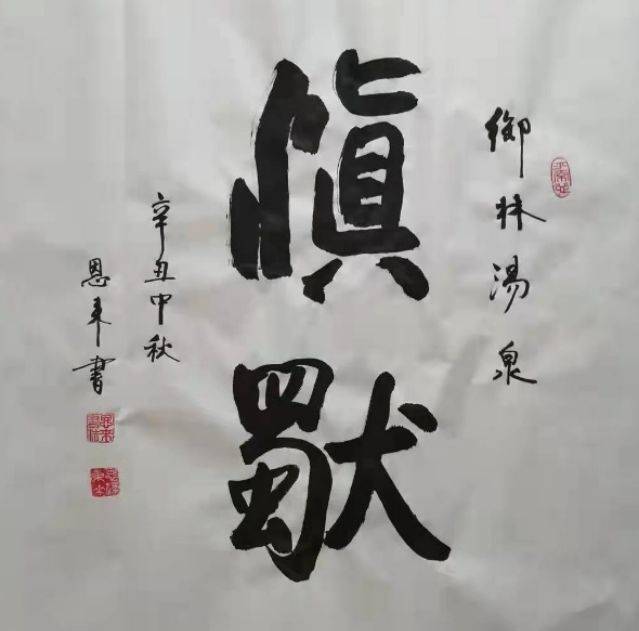 御林湯泉
愼獨
辛丑中秋
恩来書